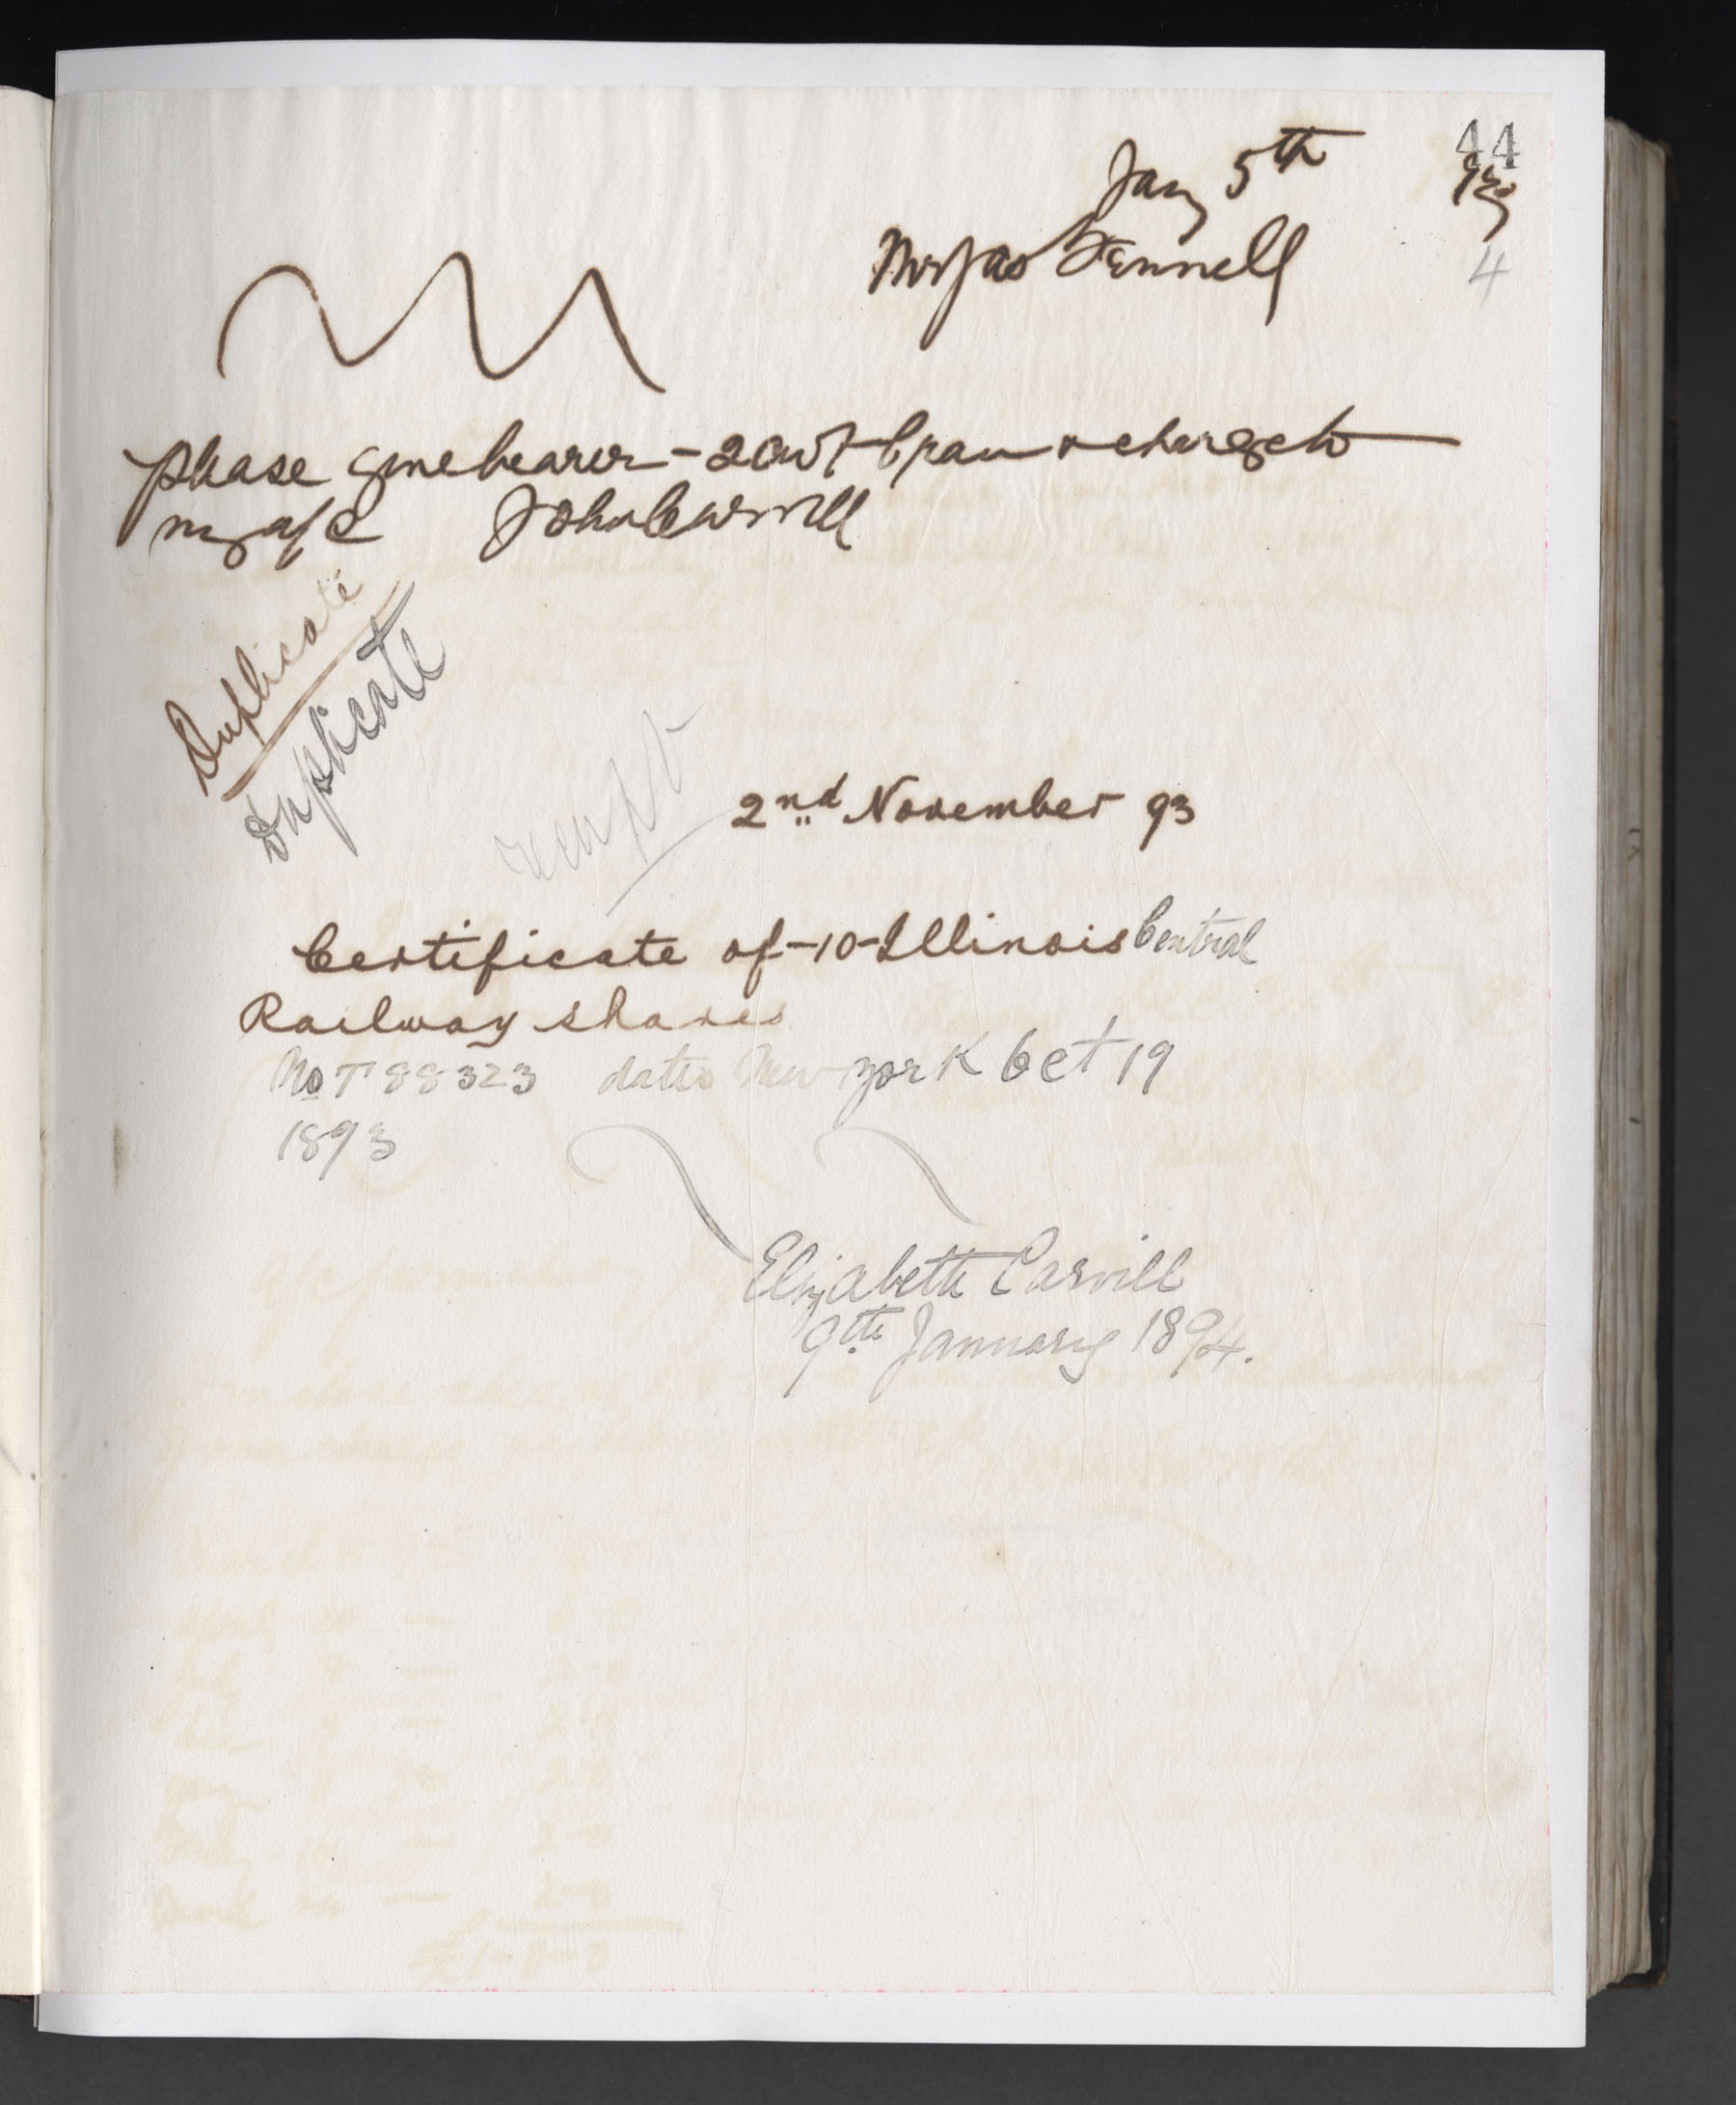 44
Jany 5th 93
4
Mr Jas Fennell
Please give bearer - 2 cwt bran & charge to
my a/c John Carvill
Duplicate
Duplicate
receipt
2nd November 93
Certificate of -10- Illinois Central
Railway shares
No T 88323 dated New York Oct 19
1893
Elizabeth Carvill
9th January 1894.